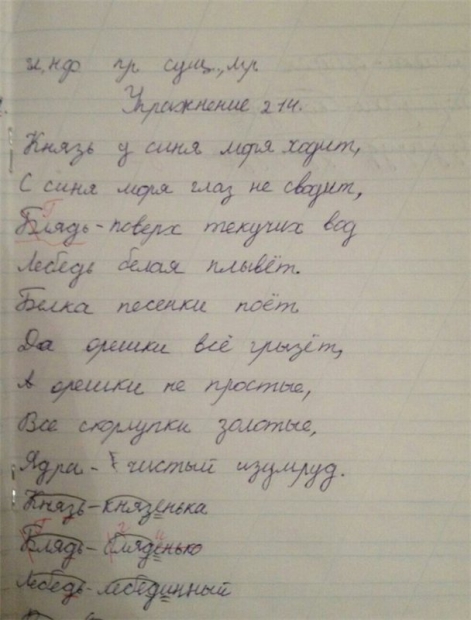 н, нф пр сущ., м.р.
Упражнение 214.
Князь у синя моря ходит,
С синя моря глаз не сводит,
Блядь - поверх текучих вод
Лебедь белая плывёт.
Белка песенки поёт
Да орешки всё грызёт,
А орешки не простые,
Все скорлупки золотые,
Ядра - чистый изумруд.
Князь - князенька
Блядь - бляденько
Лебедь - лебединный